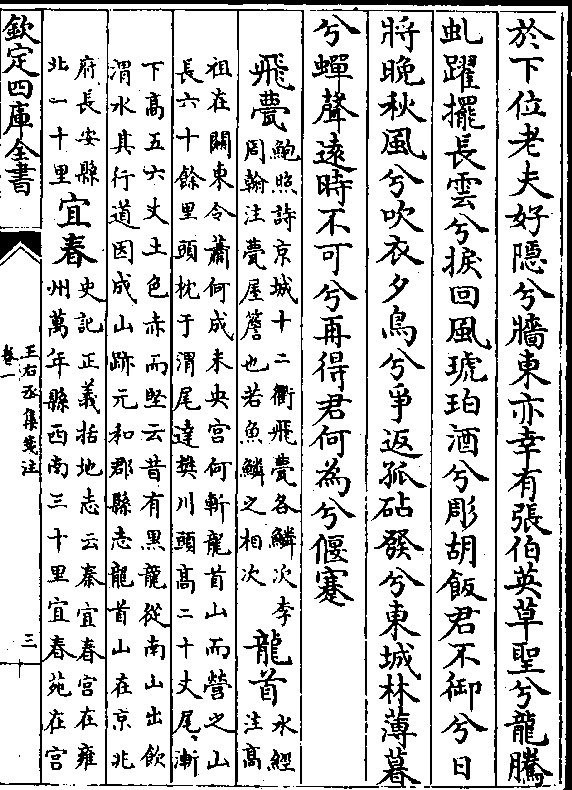 於下位老夫好隱兮牆東亦幸有張伯英草聖兮龍騰
虬躍擺長雲兮捩回風琥珀酒兮彫胡飯君不御兮日
將晚秋風兮吹衣夕鳥兮爭返孤砧發兮東城林薄暮
兮蟬聲遠時不可兮再得君何為兮偃蹇
飛甍 鮑照詩京城十二衢飛甍各鱗次李
周翰注甍屋簷也若魚鱗之相次 龍首 水經
注高
祖在關東令蕭何成未央宫何斬龍首山而營之山
長六十餘里頭枕于渭尾達樊川頭高二十丈尾漸
下高五六丈土色赤而堅云昔有黒龍從南山出飲
渭水其行道因成山跡元和郡縣志龍首山在京兆
府長安縣
北一十里 宜春 史記正義括地志云秦宜春宫在雍
州萬年縣西南三十里宜春苑在宫
欽定四庫全書
王右丞集箋注
卷一
三